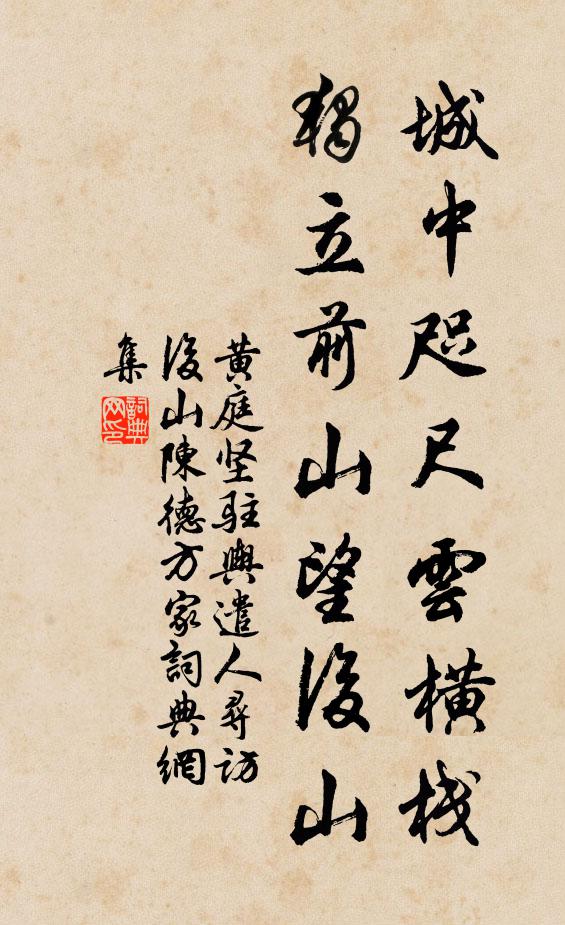 城中咫尺雲橫栈
獨立前山望後山
黄庭坚駐輿遣人尋訪
後山陳德方家詞典網
集
詞典網印